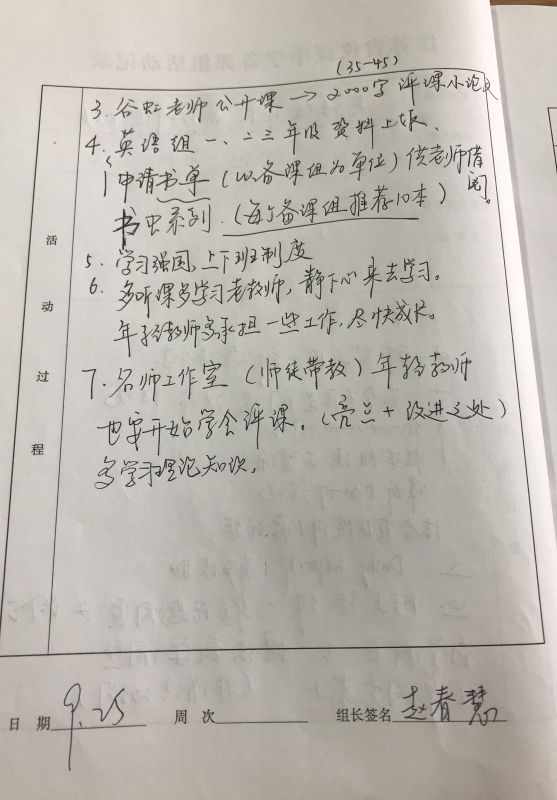 (35-45)
3. 谷虹老师公开课 → 2000字 评课小论文
4. 英语组 一、二三年级 资料上报、
申请书单 (以备课组为单位) 供老师借阅。
书虫系列. (每个备课组推荐10本)
5. 学习强国, 上下班制度
6. 多听课多学习老教师, 静下心来去学习。
年轻教师多承担一些工作, 尽快成长。
7. 名师工作室 (师徒带教) 年轻教师
也要开始学会评课. (亮点 + 改进之处)
多学习理论知识.
活动过程
日 期 9.25 周 次 组长签名 赵春慧